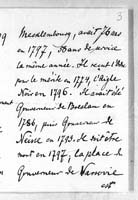 3
Mecklembourg, avait 51 ans
en 1797, 31 ans de service
la même année. Il reçut l'Ordre
pour le mérite en 1774, l'aigle
Noir en 1796. Il avait été
Gouverneur de Breslau en
1786, puis Gouverneur de
Neisse en 1793. Il dit être
mort en 1797, la place de
Gouverneur de Varsovie